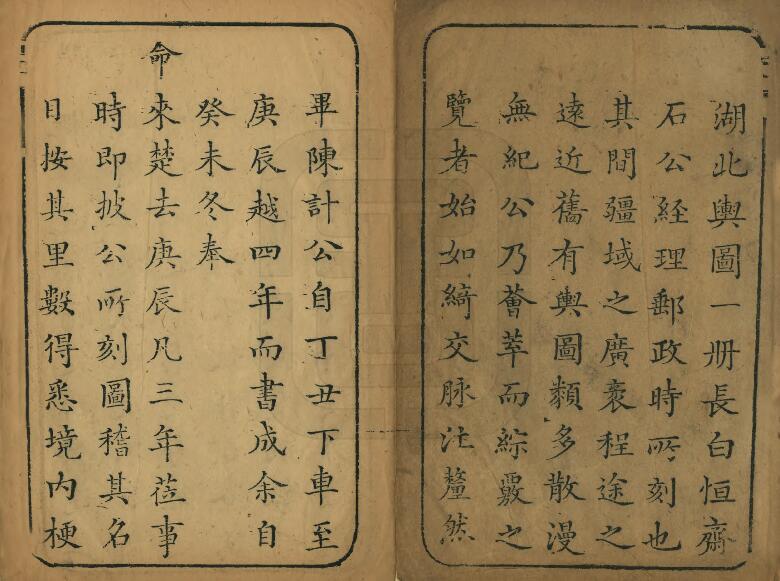 湖北輿圖一册長白恒齋
石公経理郵政時所刻也
其間疆域之廣袤程途之
遠近舊有輿圖類多散漫
無紀公乃薈萃而綜覈之
覽者始如綺交脉注釐然
畢陳計公自丁丑下車至
庚辰越四年而書成余自
癸未冬奉
命
來楚去庚辰凡三年莅事
時即披公所刻圖稽其名
目按其里數得悉境内梗